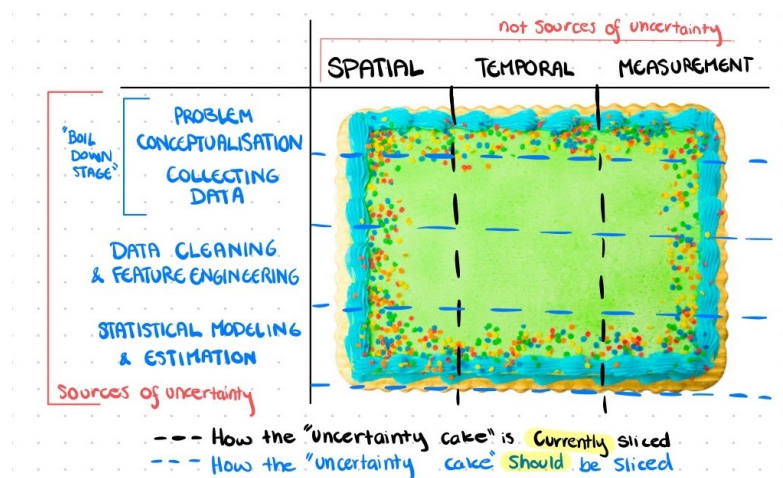 not sources of uncertainty
SPATIAL TEMPORAL MEASUREMENT
"BOIL
DOWN
STAGE"
PROBLEM
CONCEPTUALISATION
COLLECTING
DATA
DATA CLEANING
& FEATURE ENGINEERING
STATISTICAL MODELING
& ESTIMATION
Sources of uncertainty
How the "uncertainty cake" is Currently sliced
How the "uncertainty cake" Should be Sliced